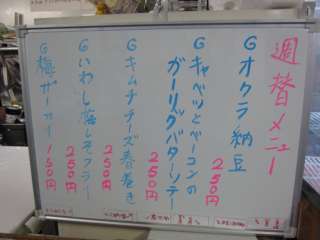 週替メニュー
G オクラ納豆
250円
G キャベツとベーコンの
ガーリックバターソテー
250円
G キムチチーズ春巻き
250円
G いわし梅しそフライ
250円
G 梅ガーガイ
150円